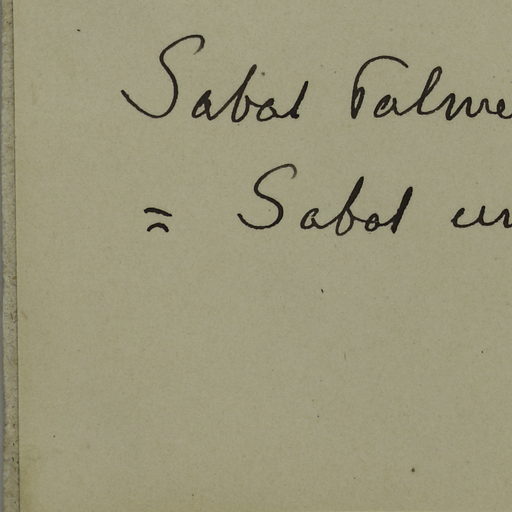 Sabal Palme
= Sabal um